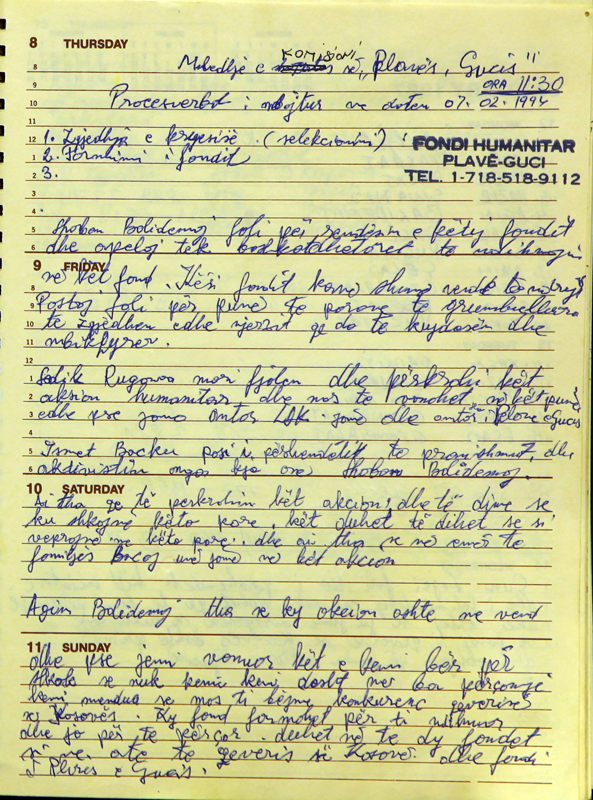 8 THURSDAY
Mbledhje e KOMISIONI në "Plavës, Gucis"
ORA 11:30
Procesverbal i mbajtur me daten 07. 02. 1994
1. Zgjedhja e kryesisë (selekcionimi)
2. Formimi i fondit
3.
FONDI HUMANITAR
PLAVË-GUCI
TEL. 1-718-518-9112
Shaban Balidemaj foli për rendësin e këtij fondit
dhe apeloj tek bashkatdhetarët te ndihmojn
9 FRIDAY
në kët fond. Këti fondit kane shum vende
Pastaj foli për pune te parave te grumbulluara
te zgjedhen edhe njerzit që do te kujdosën dhe
mbikëqyrer.
Sadik Rugova mori fjalen dhe përkrahi kët
aksion humanitar dhe mos te vonohet në kët punë
edhe pse jam antar LDK jam dhe antar i Plavë e Gucis
Ismet Backu pasi i përshendetiti te pranishmit, dhe
Shaban Balidemaj.
10 SATURDAY
Ai tha qe të perkrahim kët akcion, dhe të dime se
ku shkojnë këto pare, kët duhet të dihet se si
veprojnë me këto parë. dhe ai tha se në emër te
familjës Bacaj unë jam në kët akcion
Agim Balidemaj tha se ky akcion është ne vend
11 SUNDAY
dhe pse jemi vonuar kët e kemi bër për
shkak se nuk kemi dasht me ba përçamje
kemi mendua se mos ti bëjmë konkurenc qeverisë
së Kosovës. Ky fond formohet për ti ndihmuar
dhe jo për te përçar. duhet në te dy fondet
si me ate te qeveris së Kosovë dhe fondi
i Plavës e Gucis.